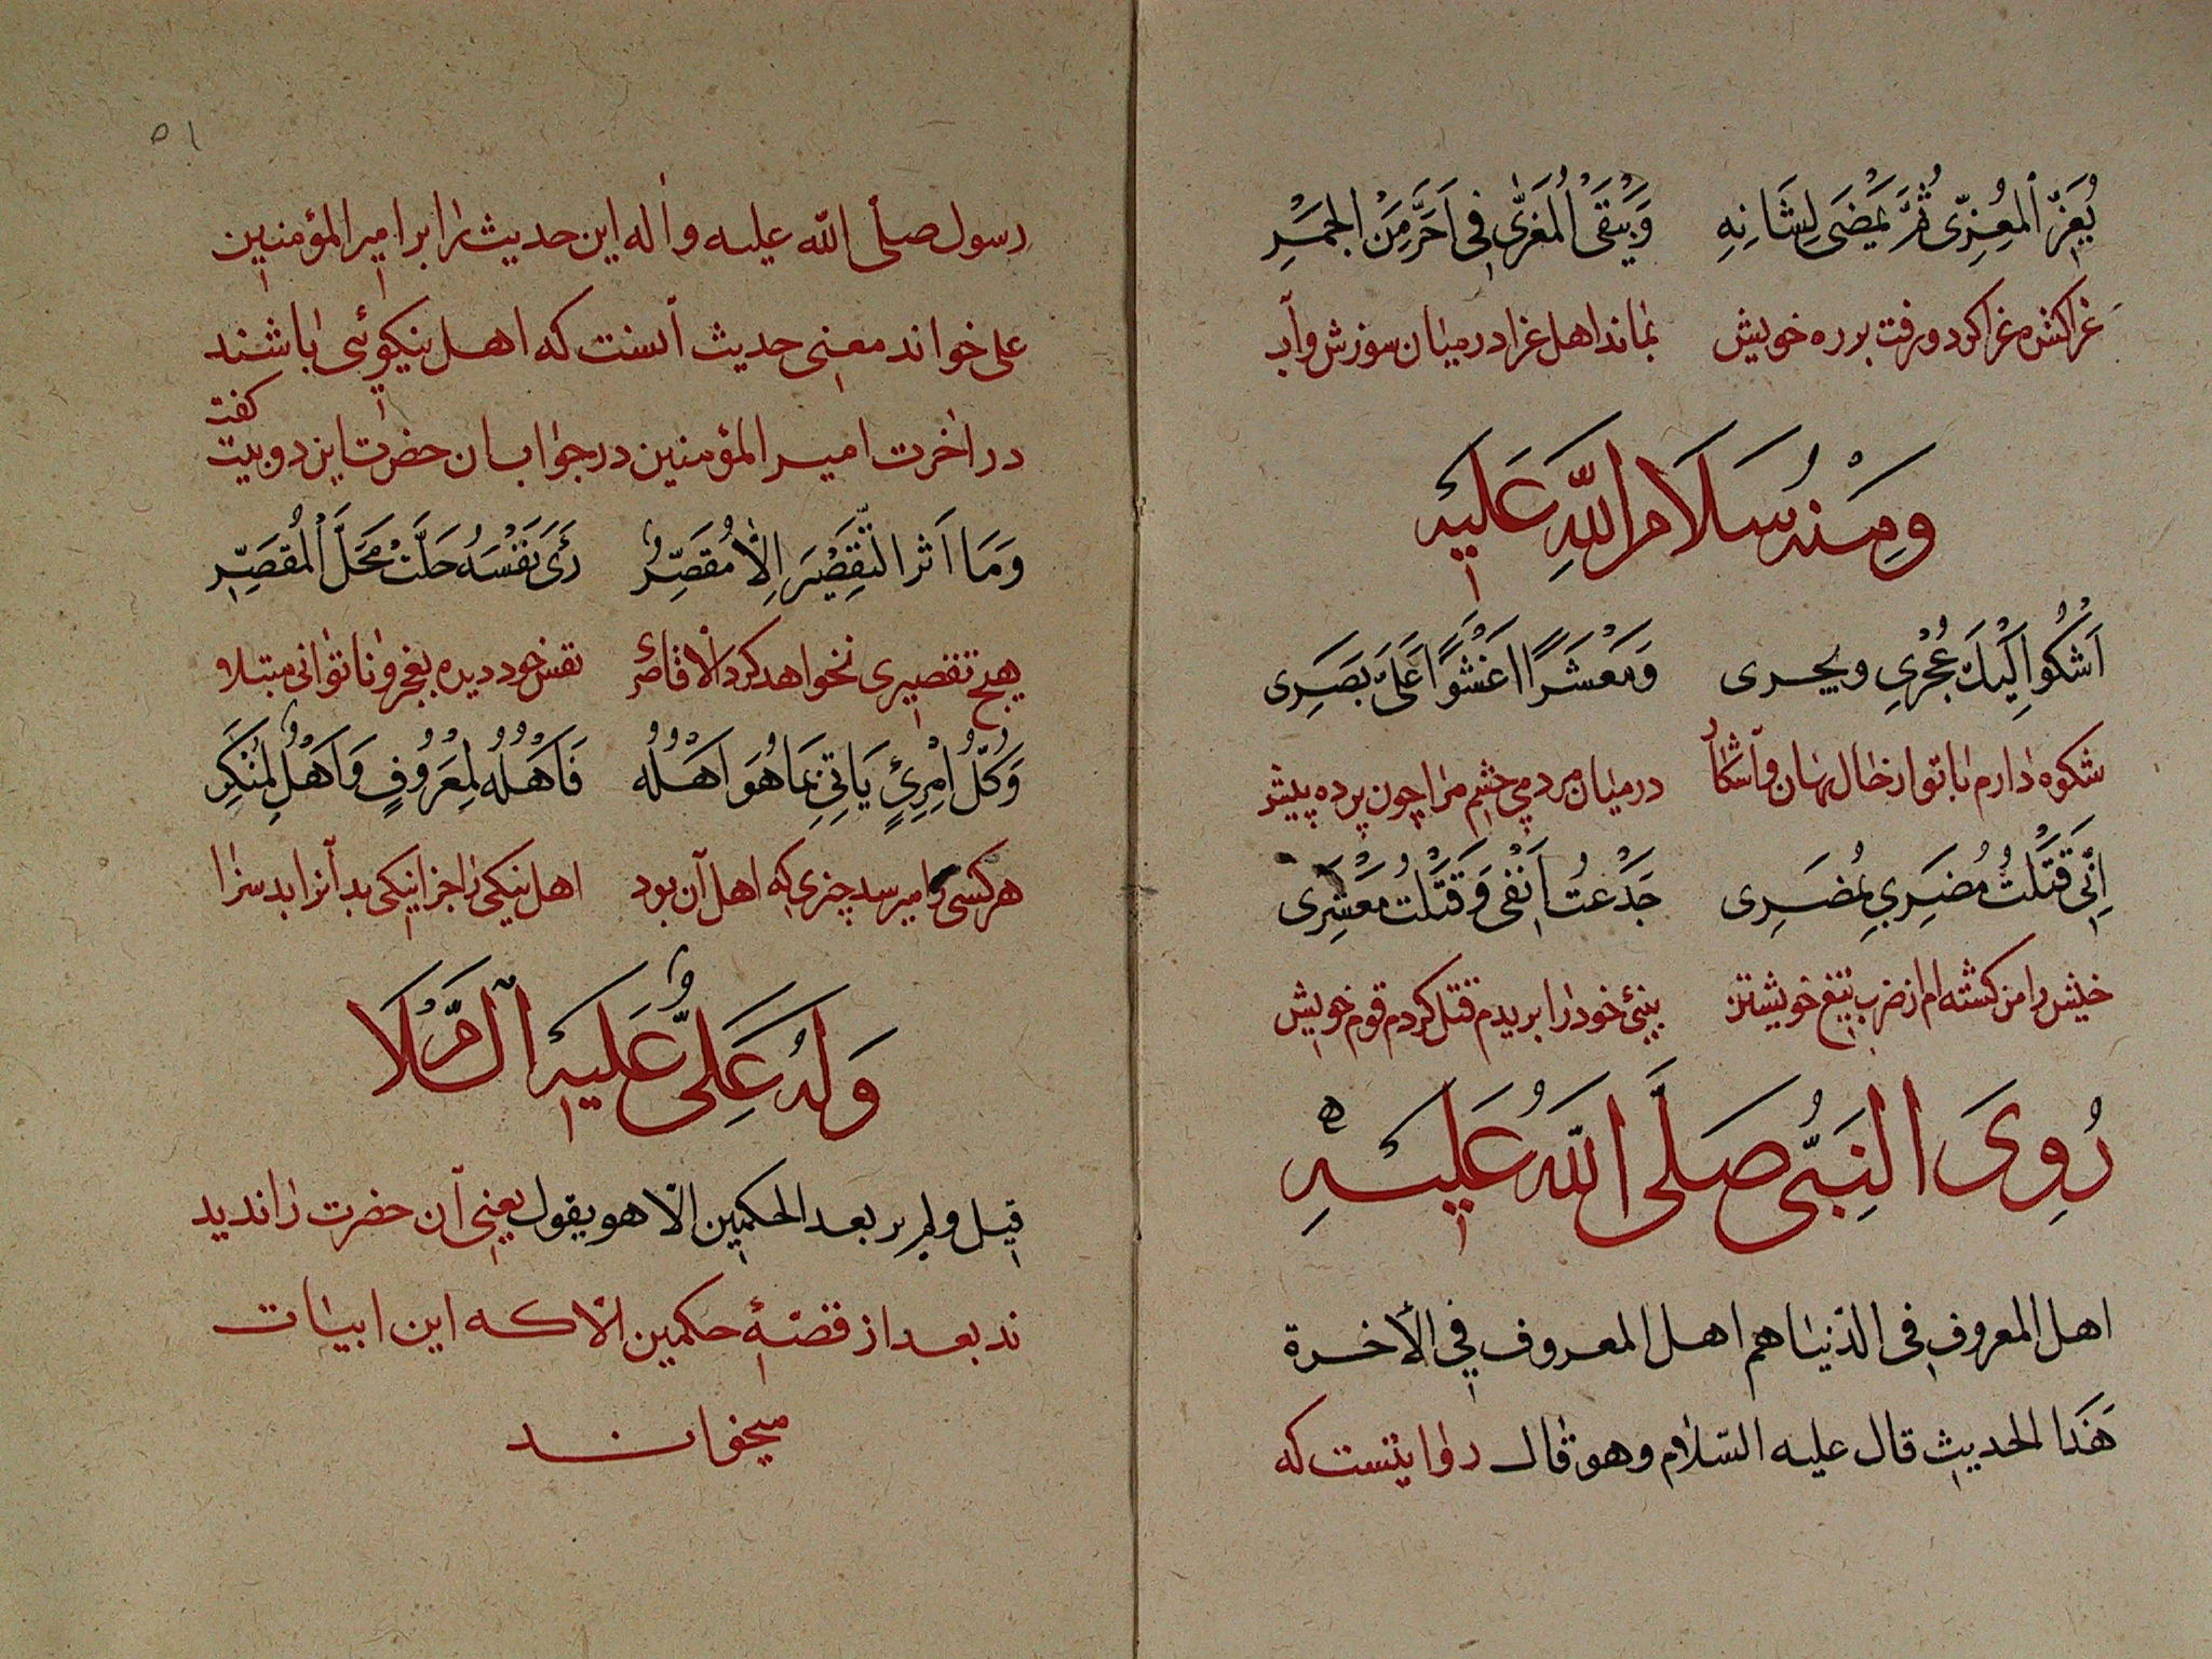 يُعَزِّ المُعِزّى ثُمَّ يَمْضَى لِشَانِهِ وَيَبْقَى الْمُعَزّٰى فِي اَحَرَّ مِنَ الْجَمَرِ
غراكش غراكرد ورفت بر ره خویش بماند اهل غرا درمیان سوزش وآب
وَمِنْهُ سَلَامُ اللّٰهِ عَلَيْهِ
اَشْكُو اِلَيْكَ عُجْرِي وبجرى وَمَعْشَرًا اغَشُّوْا عَلَىَّ بَصَرِى
شکوه دارم با تو از حال نهان وآشکار درمیان مردمی چشم مرا چون پرده پیش
اِنّى قَتَلْتُ مُضَرِي بِمُضَرِى جَدَعْتُ اَنْفِى وَقَتَلْتُ مَعْشَرِى
خیش را من کشته ام از ضرب تیغ خویشتن بینئ خود را بریدم قتل کردم قوم خویش
رُوِىَ النَبّى صَلَّى اللّٰهُ عَلَيْهِ
اهل المعروف فى الدّنيا هم اهل المعروف في الأخرة
هَذَا الحديث قال عليه السّلام وهو قال روایتست که
۵۱
رسول صلّى اللّٰه عليه واله این حدیث را بر امیر المؤمنین
علی خواند معنی حدیث آنست که اهل نیکوئی باشند
در اخرت امیر المؤمنین در جواب ان حضرت این دو بیت گفت
وَمَا اَثر التّقْصِيْرَ اِلّا مُقصِّرٌ رَئَى نَفْسَهُ حَلَّتْ مَحَلَّ الْمُقَصِّرِ
هیچ تقصیری نخواهد کرد الا قاصر نفس خود دیده بعجز و ناتوانی مبتلا
وَكُلُّ امْرِئٍ يَاتِي بِمَا هُوَ اَهْلُهُ فَاَهْلُهُ لِمَعْرُوفٍ وَاَهْلُ لِمُنْكَرِ
هر کسی را میرسد چیزی که اهل آن بود اهل نیکی را جزا نیکی بد آنرا بد سزا
وَلِهُ عَلِىٌّ عَلَيْهِ السَّلَامُ
قيل ولم ير بعد الحكمين الّا هو يقول یعنی آن حضرت را ندید
ند بعد از قصّهٔ حکمین الّا که این ابیات
میخواند